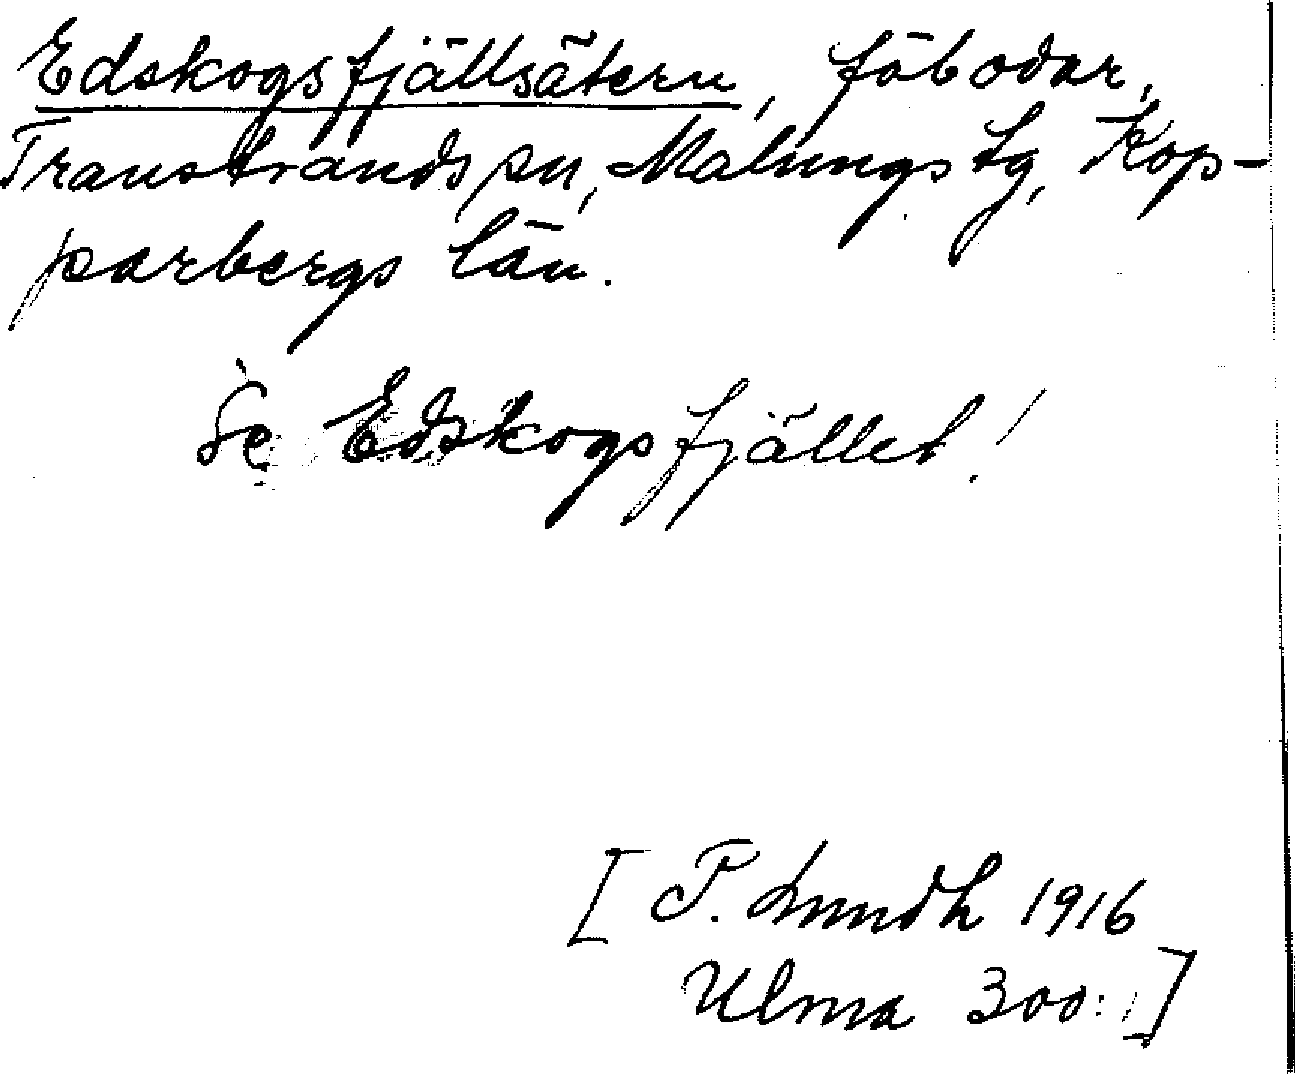 Edskogsfjällsätern, fäbodar,
Transtrands sn, Malungs tg, Kop-
parbergs län.
Se Edskogsfjället!
[P. Lundh 1916
Ulma 300: 1]